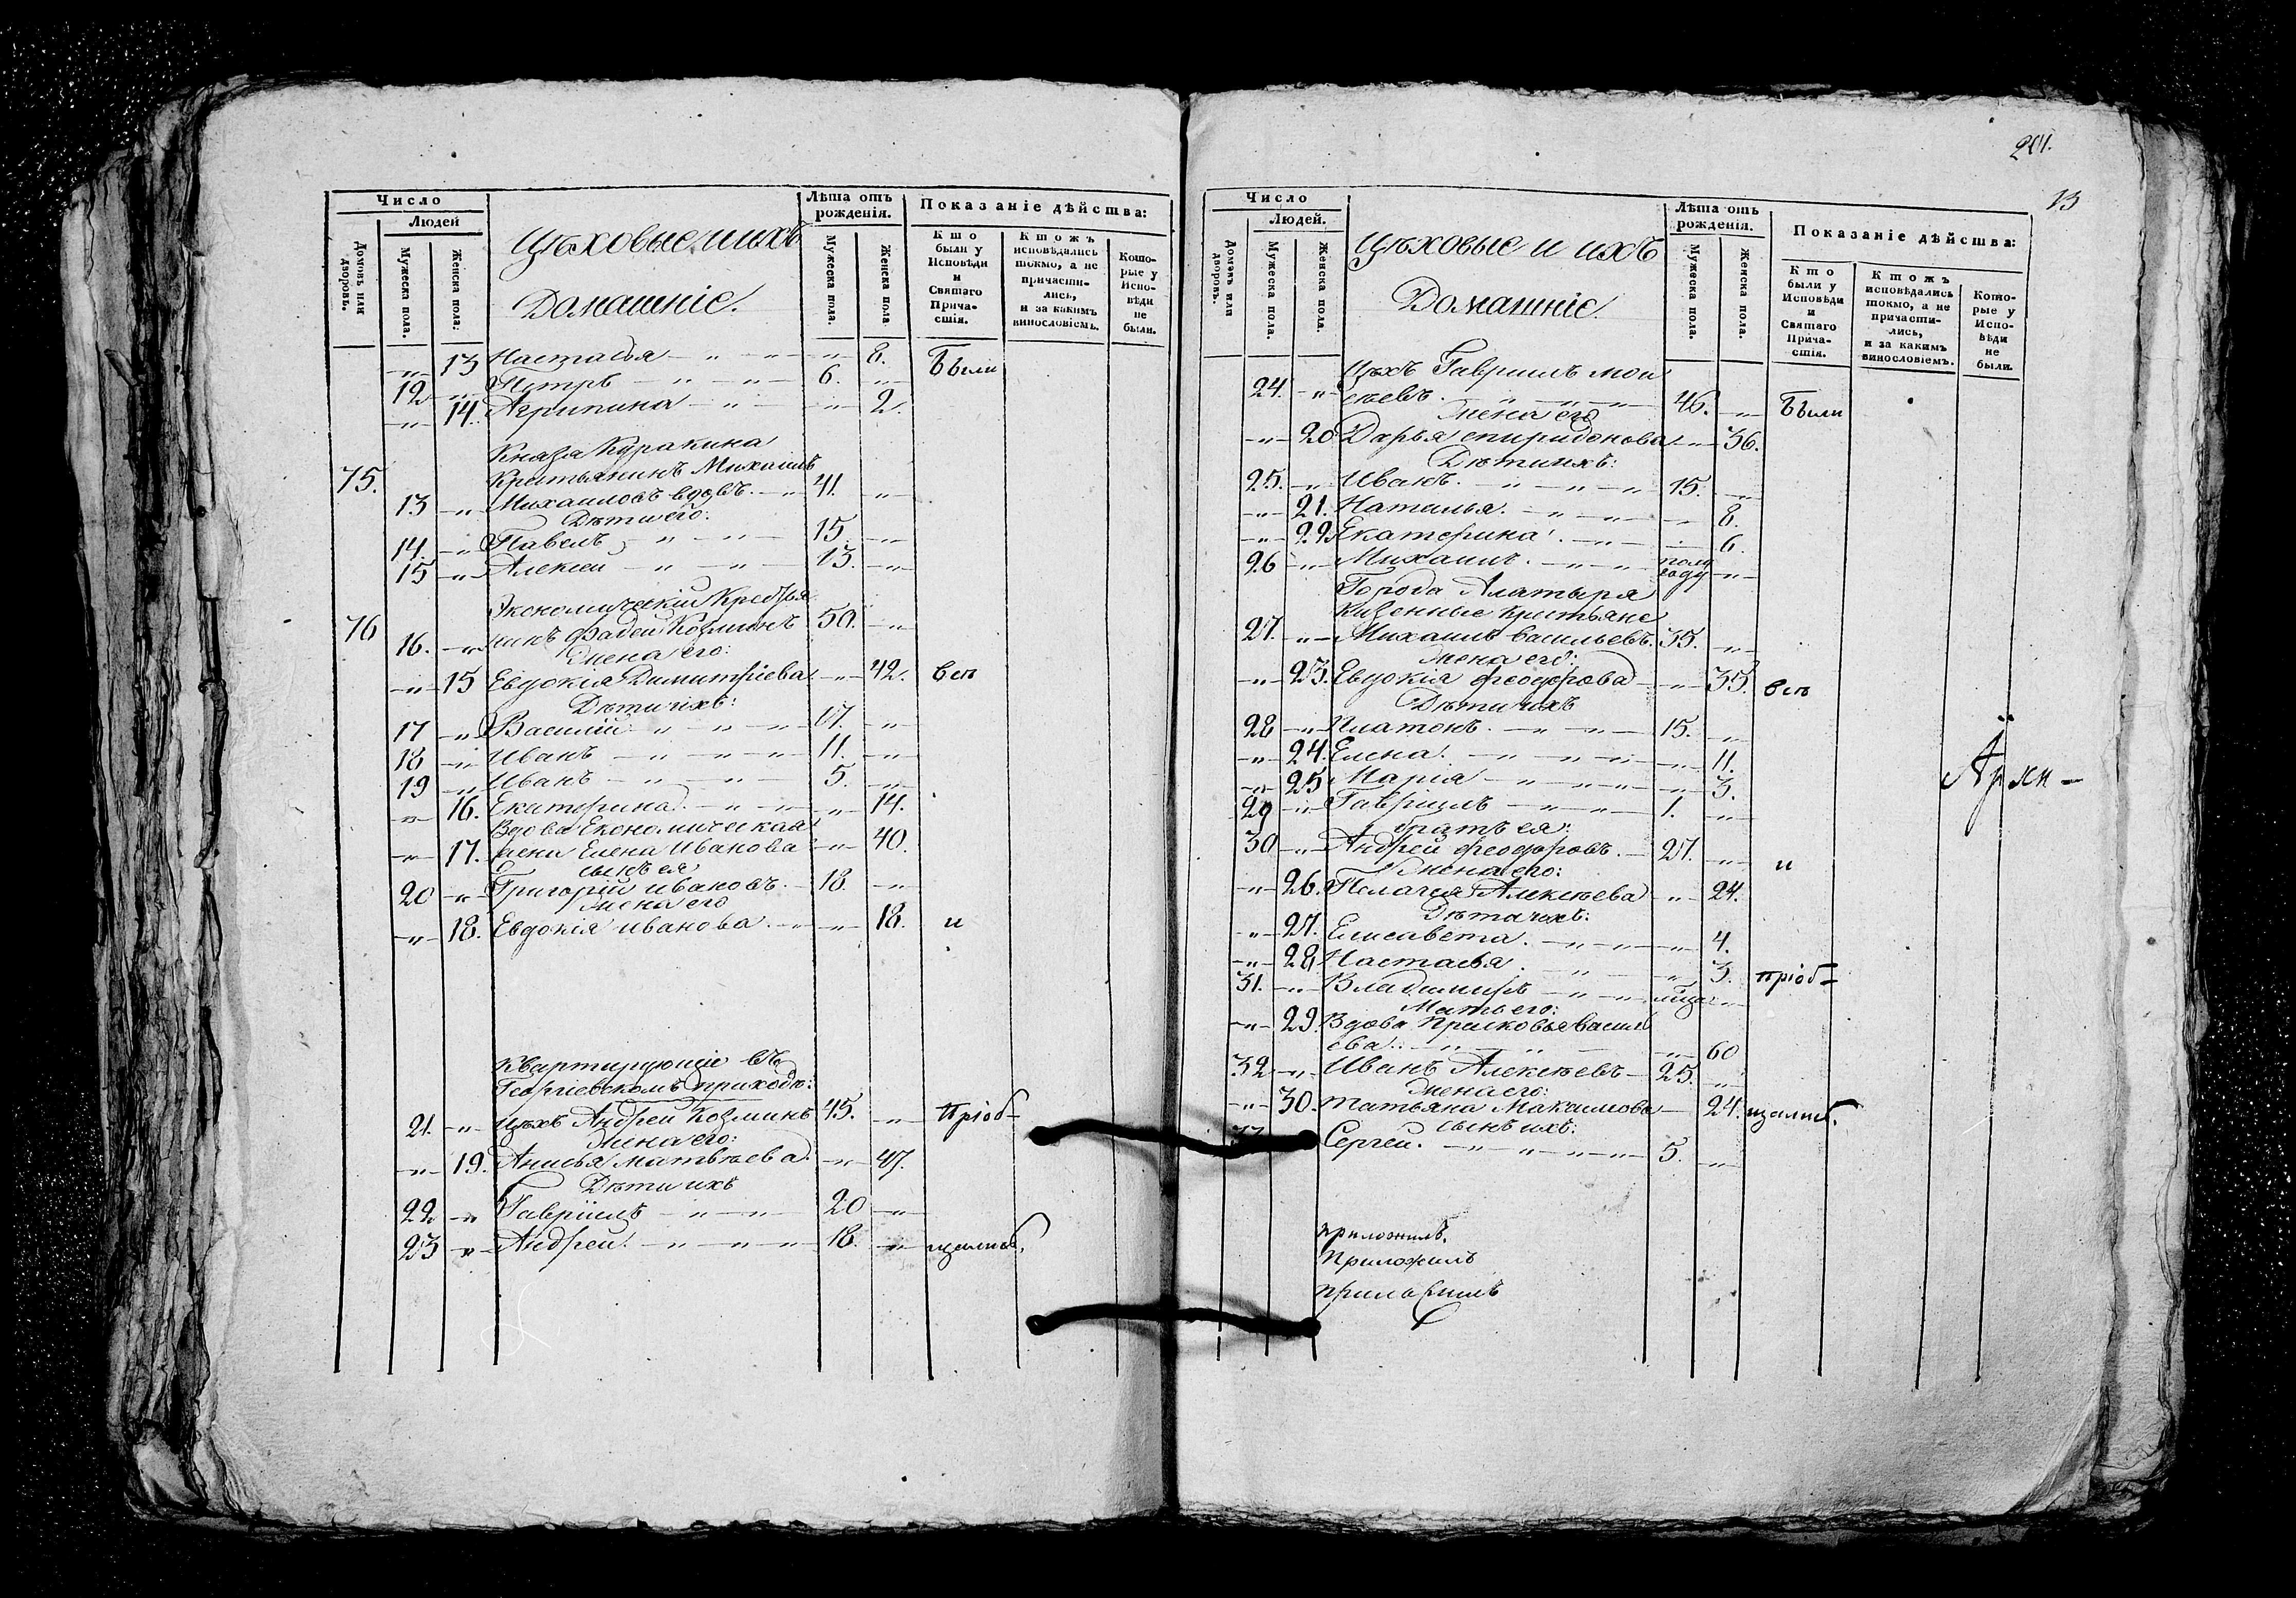 Число
Людей
Домовъ или дворовъ.
Мужеска пола.
Женска пола.
Цѣховые и ихъ
Домашніе.
Лѣта отъ рожденія.
Мужеска пола.
Женска пола.
Показаніе дѣйства:
Кто были у Исповѣди и Святаго Причастія.
Ктожъ исповѣдались токмо, а не причастились, и за какимъ винословіемъ.
Которые у Исповѣди не были.
13 Настасья 8. Были
12 Петръ 6.
14. Агрипина 2.
Князя Куракина
75. Крестьянинъ Михаилъ
13 Михаиловъ вдовъ. 41.
Дѣти его:
14. Павелъ 15
15 Алексей 13.
Экономическій Крестья
76 16. нинъ Фадей Козминъ 50.
Жена его:
15 Евдокія Димитріева 42. всѣ
Дѣти ихъ:
17 Василій 17.
18 Иванъ 11.
19 Иванъ 5.
16. Екатерина 14.
Вдова Економическая
17. Елена Иванова 40.
сынъ ея
20 Григорій ивановъ. 18.
Жена его
18. Евдокія иванова. 18. и
Квартирующіе въ
Георгіевскомъ приходѣ:
21. цѣхъ Андрей Козминъ 45. пріоб-
Жена его:
19. Анисья матвѣева 47.
Дѣти ихъ
22 Гавріилъ 20
23 Андрей. 18. щались.
201.
13
Число
Людей.
Домовъ или дворовъ.
Мужеска пола.
Женска пола.
Цѣховые и ихъ
Домашніе.
Лѣта отъ рожденія.
Мужеска пола.
Женска пола.
Показаніе дѣйства:
Кто были у Исповѣди и Святаго Причастія.
Ктожъ исповѣдались токмо, а не причастились, и за какимъ винословіемъ.
Которые у Исповѣди не были.
Цѣхъ Гавриилъ мои
24. сеевъ. 46. Были
Жена его
20 Дарья спиридонова 36.
Дѣти ихъ:
25. Иванъ. 15.
21. Наталья. 8.
22 Екатерина. 6.
26 Михаилъ. полу году
Города Алатыря
Казенные крестьяне
27. Михаилъ васильевъ. 35.
Жена его:
23. Евдокія феодорова 35. всѣ
Дѣти ихъ
28 Платонъ. 15.
24. Елена. 11.
25 Марія 3.
29 Гавріилъ 1.
братъ ея:
30 Андрей феодоровъ. 27. и
Жена его:
26. Пелагея Алексѣева 24.
Дѣти ихъ:
27. Елисавета. 4.
28 Настасья. 3. пріоб-
31. Владимиръ
Мать его:
29. Вдова Прасковья васил
ева. 60
32 Иванъ Алексѣевъ 25.
Жена его:
30. Татьяна Максимова 24. щались.
сынъ ихъ:
Сергей. 5.
приложилъ.
Приложилъ